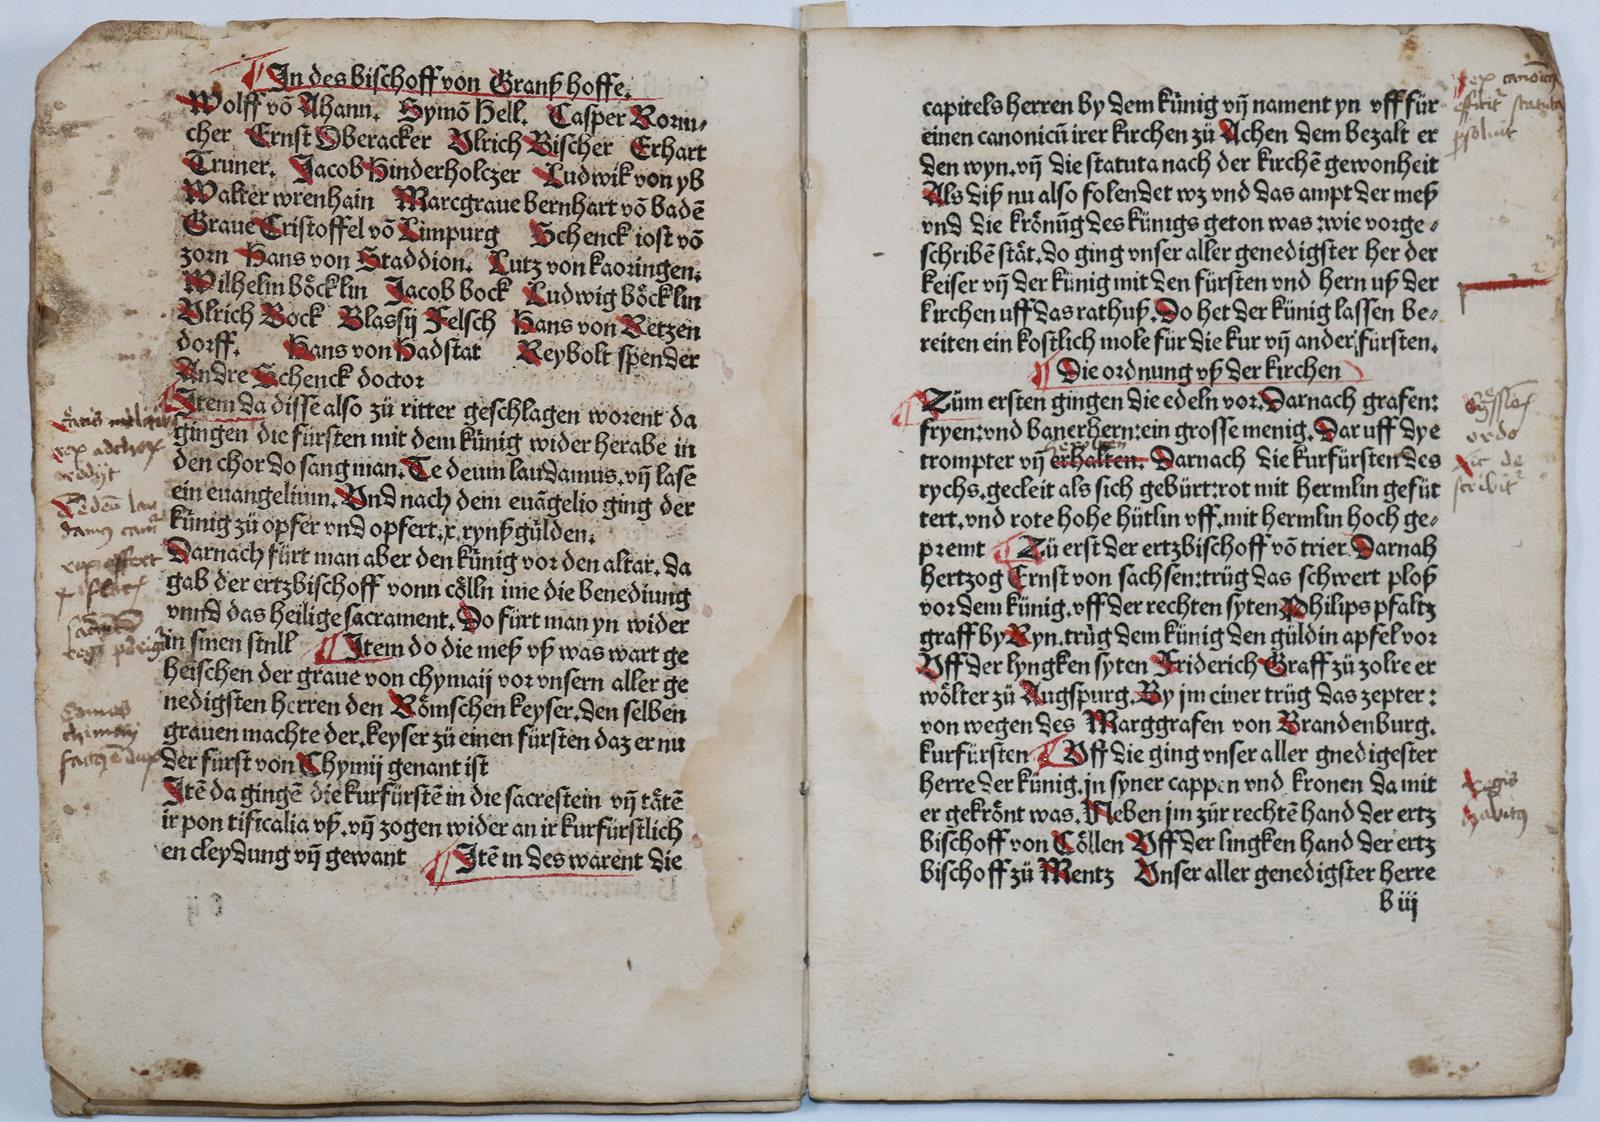 In des bischoff von Granß hoffe.
Wolff võ Ahann. Symõ Hell. Casper Rorm⸗
cher Ernst Oberacker Vlrich Bischer Erhart
Truner. Jacob Hinderholczer Ludwik von yb
Walter wrenhain Marcgraue bernhart võ badē
Graue Cristoffel võ Limpurg Schenck iost võ
zorn Hans von Staddion. Lutz von kaoringen.
Wilhelm böcklin Jacob bock Ludwig böcklin
Vlrich Bock Blassij Felsch Hans von Retzen
dorff. Hans von Hadstat Reybolt spender
Andre Schenck doctor
Item da disse also zü ritter geschlagen worent da
gingen die fürsten mit dem künig wider herabe in
den chor do sang man. Te deum laudamus. vn̄ lase
ein euangelium. Vnd nach dem euāgelio ging der
künig zü opfer vnd opfert. x. rynß gülden.
Darnach fürt man aber den künig vor den altar. da
gab der ertzbischoff vonn cölln ime die benediung
vnnd das heilige sacrament. Do fürt man yn wider
in sinen stnll Item do die meß vß was wart ge
heischen der graue von chymaij vor vnsern aller ge
nedigsten herren den Römschen keyser. den selben
grauen machte der. keyser zü einen fürsten daz er nu
der fürst von Chymij genant ist
Itē da gingē die kurfürstē in die sacrestein vn̄ tätē
ir pon tificalia vß. vn̄ zogen wider an ir kurfürstlich
en cleydung vn̄ gewant Itē in des warent die
rex adolx
Te deū lau
damus
rex offert
x flor
Comes
chimaij
capitels herren by dem künig vn̄ nament yn vff für
einen canonicū irer kirchen zü Achen dem bezalt er
den wyn. vn̄ die statuta nach der kirchē gewonheit
Als diß nu also folendet wz vnd das ampt der meß
vnd die krönūg des künigs geton was: wie vorge⸗
schribē stät. do ging vnser aller genedigster her der
keiser vn̄ der künig mit den fürsten vnd hern uß der
kirchen uff das rathuß. Do het der künig lassen be⸗
reiten ein kostlich mole für die kur vn̄ ander fürsten.
Die ordnung vß der kirchen
Züm ersten gingen die edeln vor. Darnach grafen:
fryen: vnd banerhern: ein grosse menig. Dar uff dye
trompter vn̄ erhalten. Darnach die kurfürsten des
rychs. gecleit als sich gebürt: rot mit hermlin gefüt
tert. vnd rote hohe hütlin vff. mit hermlin hoch ge⸗
premt Zü erst der ertzbischoff võ trier. Darnah
hertzog Ernst von sachsen: trüg das schwert ploß
vor dem künig. vff der rechten syten Philips pfaltz
graff by Ryn. trüg dem künig den güldin apfel vor
Vff der lyngken syten Friderich Graff zü zolre er
wölter zü Augspurg. By jm einer trüg das zepter:
von wegen des Marggrafen von Brandenburg.
kurfürsten Vff die ging vnser aller gnedigester
herre der künig. jn syner cappen vnd kronen da mit
er gekrönt was. Neben jm zür rechtē hand der ertz
bischoff von Cöllen Vff der lingken hand der ertz
bischoff zü Mentz Vnser aller genedigster herre
b iij
rex canoicus
efficitr statuta
psoluit
ordo
hic de
scribitr
Regis
habitus